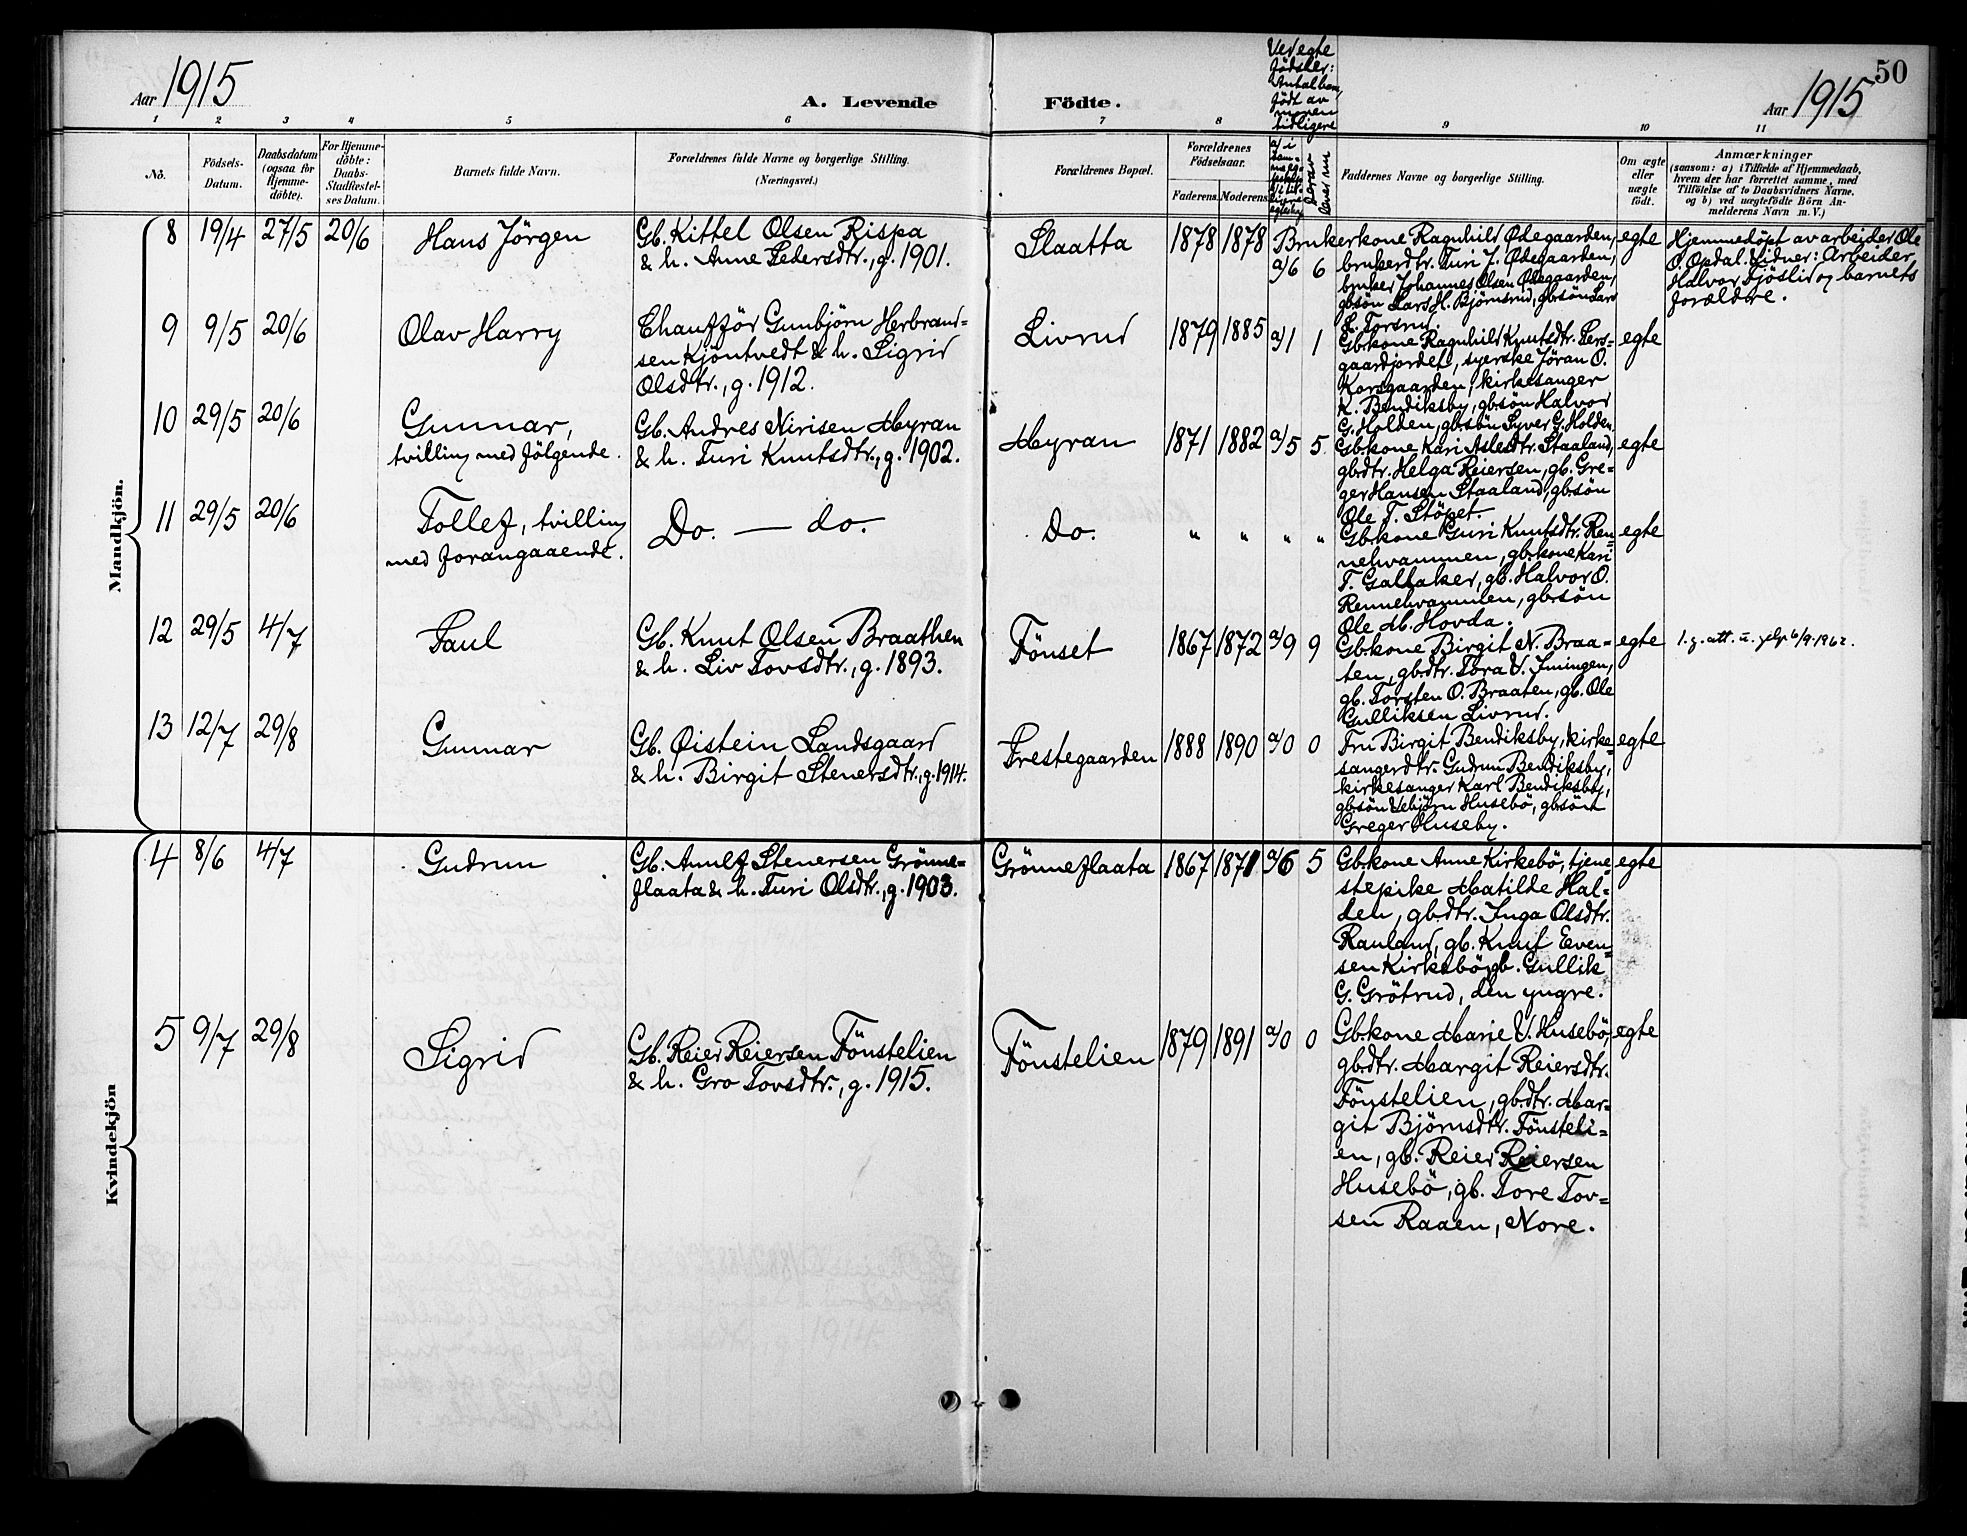 Aar 1915
A. Levende Födte.
Aar 1915
50
Ved egte
födsler:
Antal barn,
födt av
moren
tidligere
1 2 3 4 5 6 7 8 9 10 11
No.
Födsels-
Datum.
Daabsdatum
(ogsaa for
Hjemme-
döbte).
For Hjemme-
döbte:
Daabs-
Stadfæstel-
ses Datum.
Barnets fulde Navn.
Forældrenes fulde Navne og borgerlige Stilling.
(Næringsvei.)
Forældrenes Bopæl.
Forældrenes
Födselsaar.
Faderens. Moderens.
Derav
lever nu
Faddernes Navne og borgerlige Stilling.
Om ægte
eller
uægte
födt.
Anmærkninger
(saasom: a) i Tilfælde af Hjemmedaab,
hvem der har forrettet samme, med
Tilföielse af to Daabsvidners Navne,
og b) ved uægtefödte Börn An-
melderens Navn m. V.)
Mandkjön.
8 19/4 27/5 20/6 Hans Jörgen
Gb. Kittel Olsen Rispa
& h. Anne Pedersdtr., g. 1901.
Slaatta 1878 1878 a/6 6
Brukerkone Ragnhild Ødegaarden,
brukerdtr. Turi J. Ødegaarden,
bruker Johannes Olsen Ødegaarden,
gbsön Lars H. Björnsrud, gbsön Lars
L. Torsrud.
egte
Hjemmedöpt av arbeider Ole
O. Opdal. Vidner: Arbeider
Halvor Fjöslid og barnets
forældre.
9 9/5 20/6 Olav Harry
Chaufför Gunbjörn Herbrand=
sen Kjöntvedt & h. Sigrid
Olsdtr., g. 1912.
Livrud 1879 1885 a/1 1
Gb.kone Ragnhild Knutsdtr. Pers=
gaardjordet, syerske Jöran O.
Korsgaarden, kirkesanger
K. Bendiksby, gbsön Halvor
G. Holden, gbsön Syver G. Holden.
egte
10 29/5 20/6 Gunnar,
tvilling med fölgende.
Gb. Andres Nirisen Myran
& h. Turi Knutsdtr., g. 1902.
Myran 1871 1882 a/5 5
Gb.kone Kari Aslesdtr. Staaland,
gbdtr. Helga Reiersen, gb. Gre=
ger Hansen Staaland, gbsön
Ole T. Stöpet.
egte
11 29/5 20/6 Tollef, tvilling
med forangaaende.
Do. — do.
Do. " " " "
Gb.kone Guri Knutsdtr. Ren=
nehvammen, gb.kone Kari
T. Gallaker, gb. Halvor O.
Rennehvammen, gbsön
Ole M. Hovda.
egte
12 29/5 4/7 Paul
Gb. Knut Olsen Braathen
& h. Liv Tovsdtr., g. 1893.
Fönset 1867 1872 a/9 9
Gb.kone Birgit N. Braa=
ten, gbdtr. Tora V. Imingen,
gb. Torsten O. Braaten, gb. Ole
Gulliksen Livrud.
egte
6/9.1962.
13 12/7 29/8 Gunnar
Gb. Øistein Landsgaard
& h. Birgit Stenersdtr., g. 1914.
Prestegaarden 1888 1890 a/0 0
Fru Birgit Bendiksby, kirke=
sangerdtr. Gudrun Bendiksby,
kirkesanger Karl Bendiksby,
gbsön Vebjörn Husebö, gbsön
Greger Huseby.
egte
Kvindekjön
4 8/6 4/7 Gudrun
Gb. Anulf Stenersen Grönne=
flaata & h. Turi Olsdtr., g. 1903.
Grönneflaata 1867 1871 a/6 5
Gb.kone Anne Kirkebö, tjene=
stepike Matilde Hal=
den, gbdtr. Inga Olsdtr.
Rauland, gb. Knut Even=
sen Kirkebö, gb. Gullik
G. Grötrud, den yngre.
egte
5 9/7 29/8 Sigrid
Gb. Reier Reiersen Fönstelien
& h. Gro Tovsdtr., g. 1915.
Fönstelien 1879 1891 a/0 0
Gb.kone Marie V. Husebö,
gbdtr. Margit Reiersdtr.
Fönstelien, gb.dtr. Mar=
git Björnsdtr. Fönsteli=
en, gb. Reier Reiersen
Husebö, gb. Tore Tov=
sen Raaen, Nore.
egte